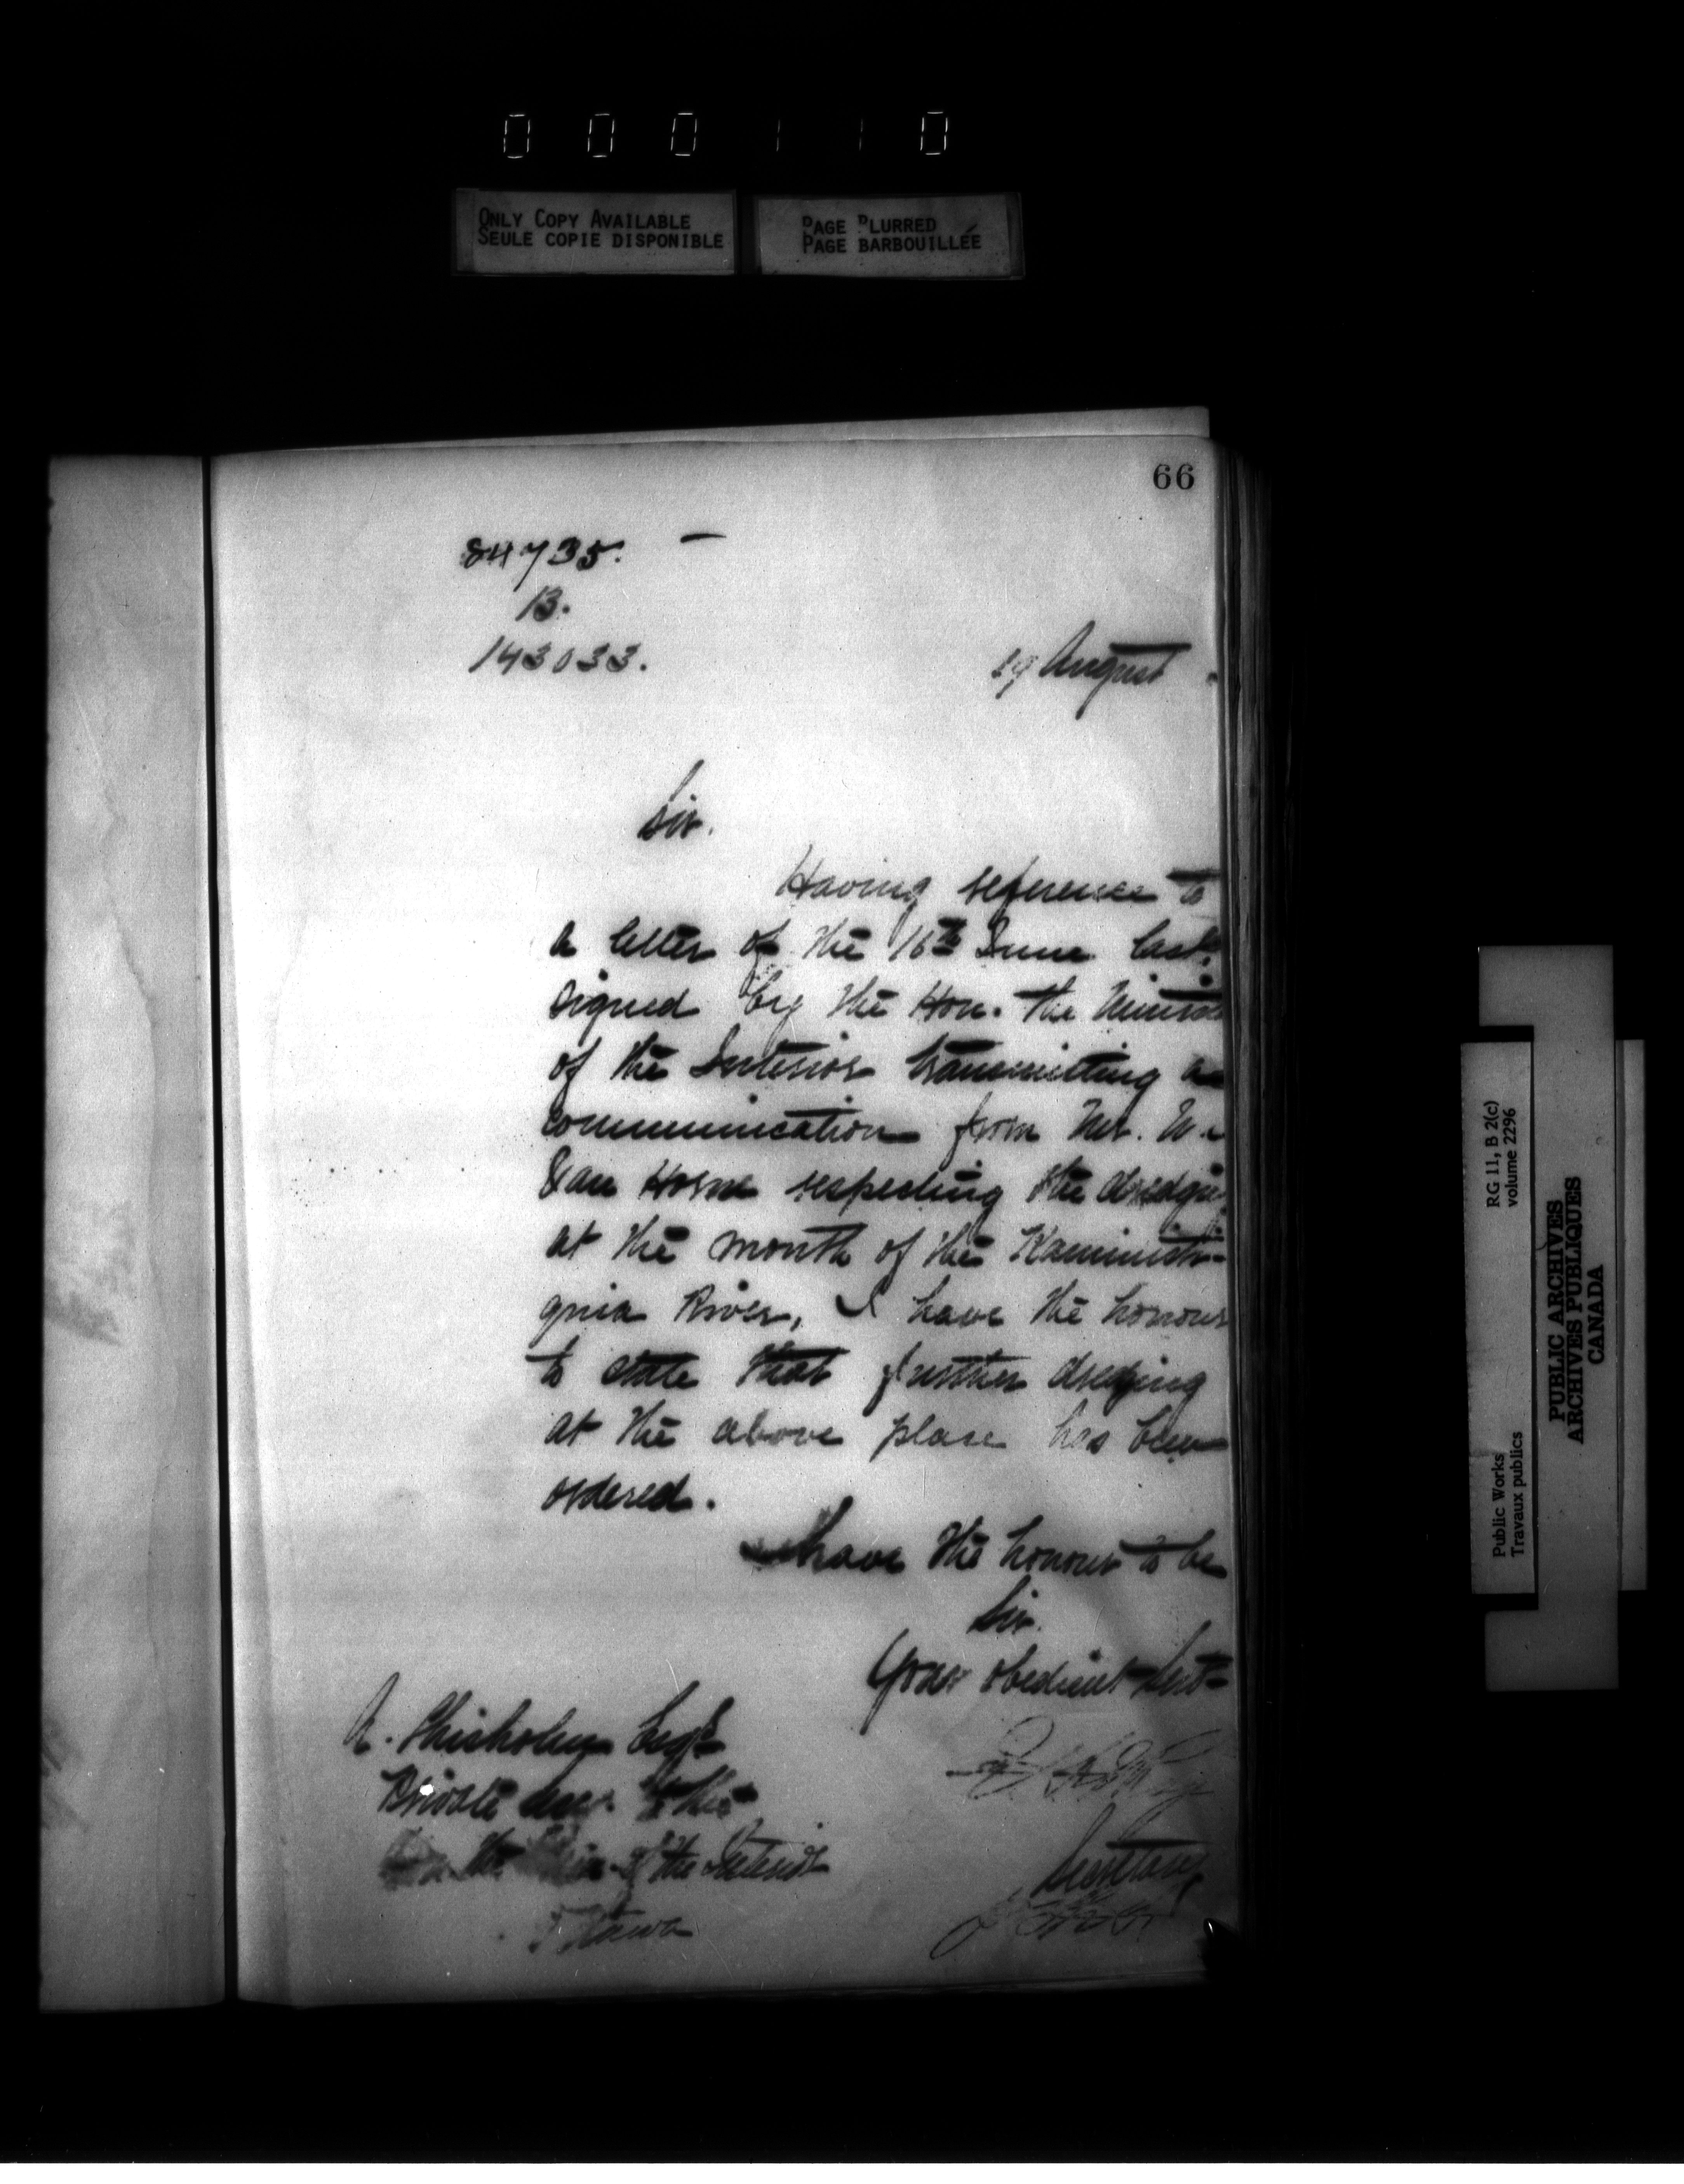 000110
ONLY COPY AVAILABLE
SEULE COPIE DISPONIBLE
PAGE BLURRED
PAGE BARBOUILLÉE
66
84735.
B.
143033.
19 August
Sir.
Having reference to
a letter of the 16th June last,
signed by the Hon. the Minister
of the Interior transmitting a
communication from Mr. W.
Van Horne respecting the dredging
at the mouth of the Kaministi-
quia River, I have the honour
to state that further dredging
at the above place has been
ordered.
I have the honour to be
Sir.
Your obedient Servt
A. Chisholm Esqr
Private Secy. to the
Hon. the Min. of the Interior
Ottawa
Secretary
Public Works
Travaux publics
RG 11, B 2(c)
volume 2296
PUBLIC ARCHIVES
ARCHIVES PUBLIQUES
CANADA